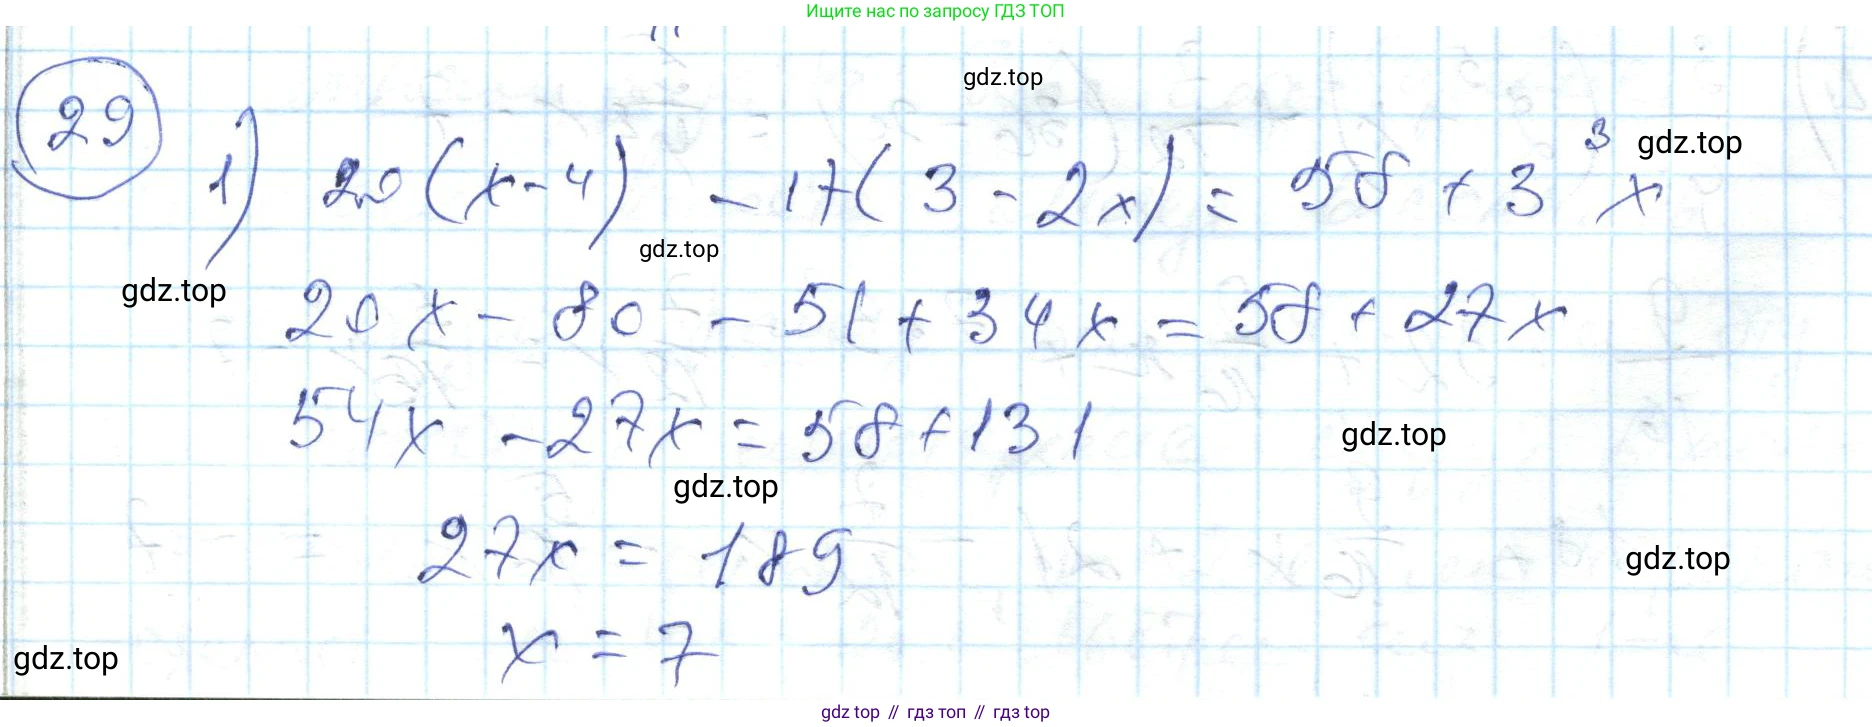 Ищите нас по запросу ГДЗ ТОП
gdz.top
29 1) 20(x-4) -17(3-2x)=58+3³x
gdz.top
gdz.top
gdz.top
20x-80-51+34x=58+27x
54x-27x=58+131
gdz.top
gdz.top
27x=189
gdz.top
x=7
gdz.top
gdz top // гдз топ // гдз top